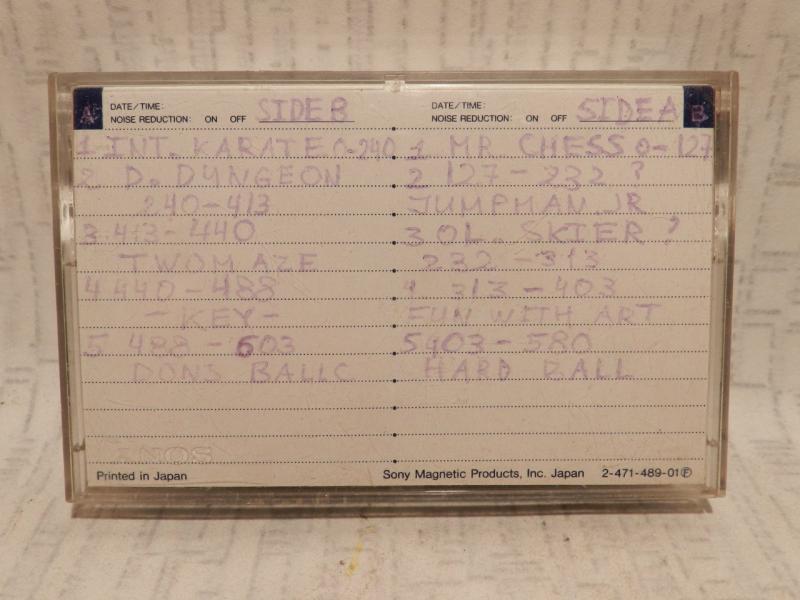 A DATE/TIME:
NOISE REDUCTION: ON OFF SIDE B
1 INT. KARATE 0-240
2 D. DYNGEON
240-413
3 413-440
TWOMAZE
4 440-488
-KEY-
5 488-603
DONS BALLC
SONY
Printed in Japan
DATE/TIME:
NOISE REDUCTION: ON OFF SIDE A B
1 MR CHESS 0-127
2 127-232 ?
JUMPMAN JR
3 OL. SKIER ?
232-313
4 313-403
FUN WITH ART
5 403-580
HARD BALL
Sony Magnetic Products, Inc. Japan 2-471-489-01 Ⓕ